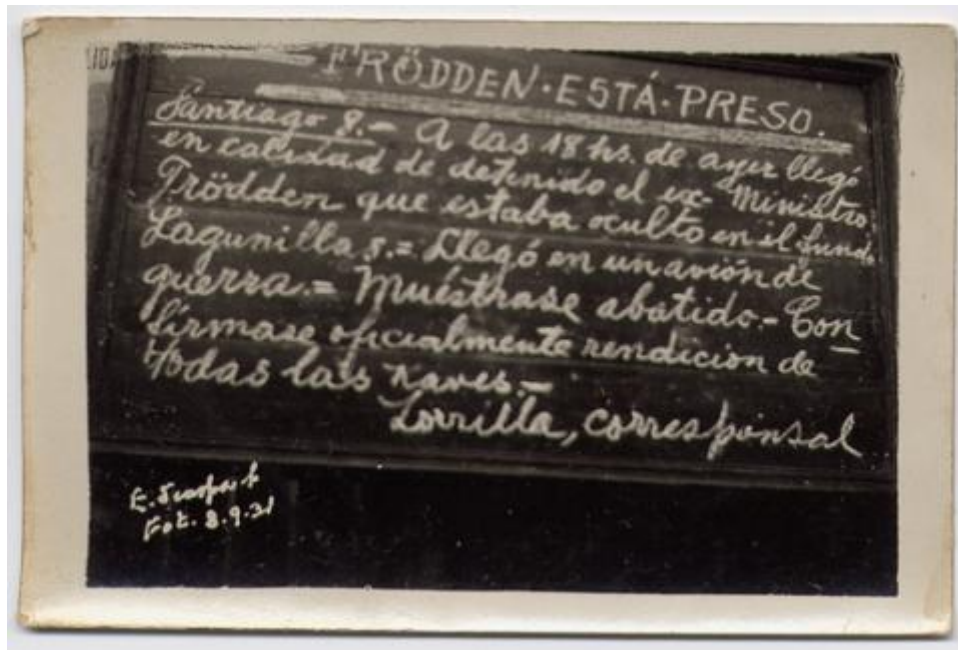 FRÖDDEN·ESTÁ·PRESO.
Santiago 8.- A las 18 hs. de ayer llegó
en calidad de detenido el ex- Ministro
Frödden que estaba oculto en el fundo
Lagunillas.= Llegó en un avión de
guerra.= Muéstrase abatido.- Con
fírmase oficialmente rendicion de
todas las naves.-
Zorrilla, corresponsal
E.
Fot. 8.9.31